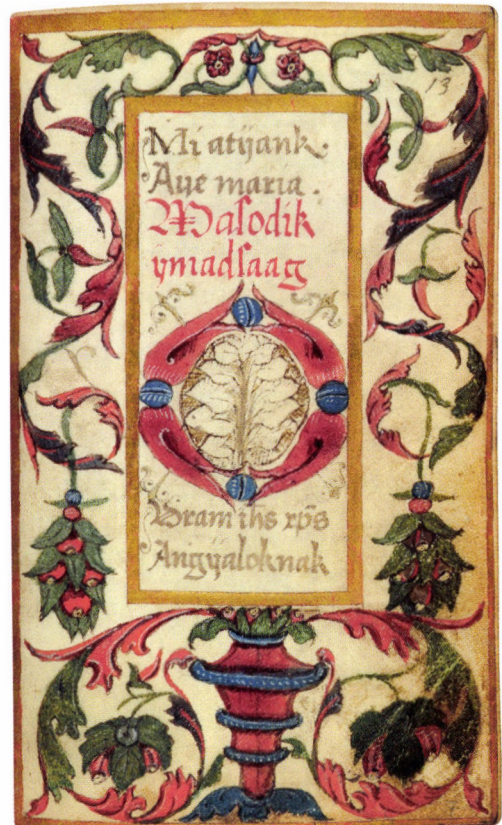 13
Mi atÿank.
Aue maria.
Masodik
ymadsaag
Vram ihs xp̄s
Angÿaloknak